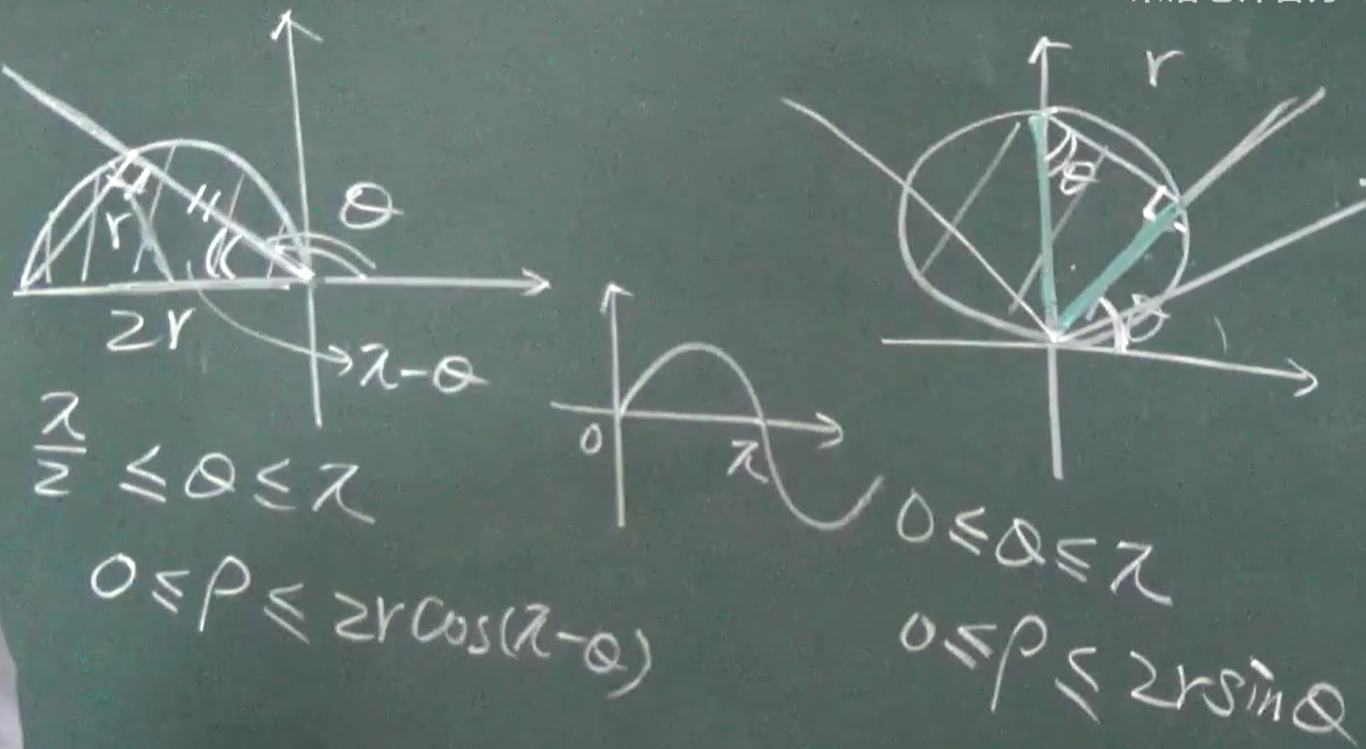 θ
r
2r
π-θ
π/2 ≤ θ ≤ π
0 ≤ ρ ≤ 2r cos(π-θ)
0
π
r
θ
θ
0 ≤ θ ≤ π
0 ≤ ρ ≤ 2r sinθ